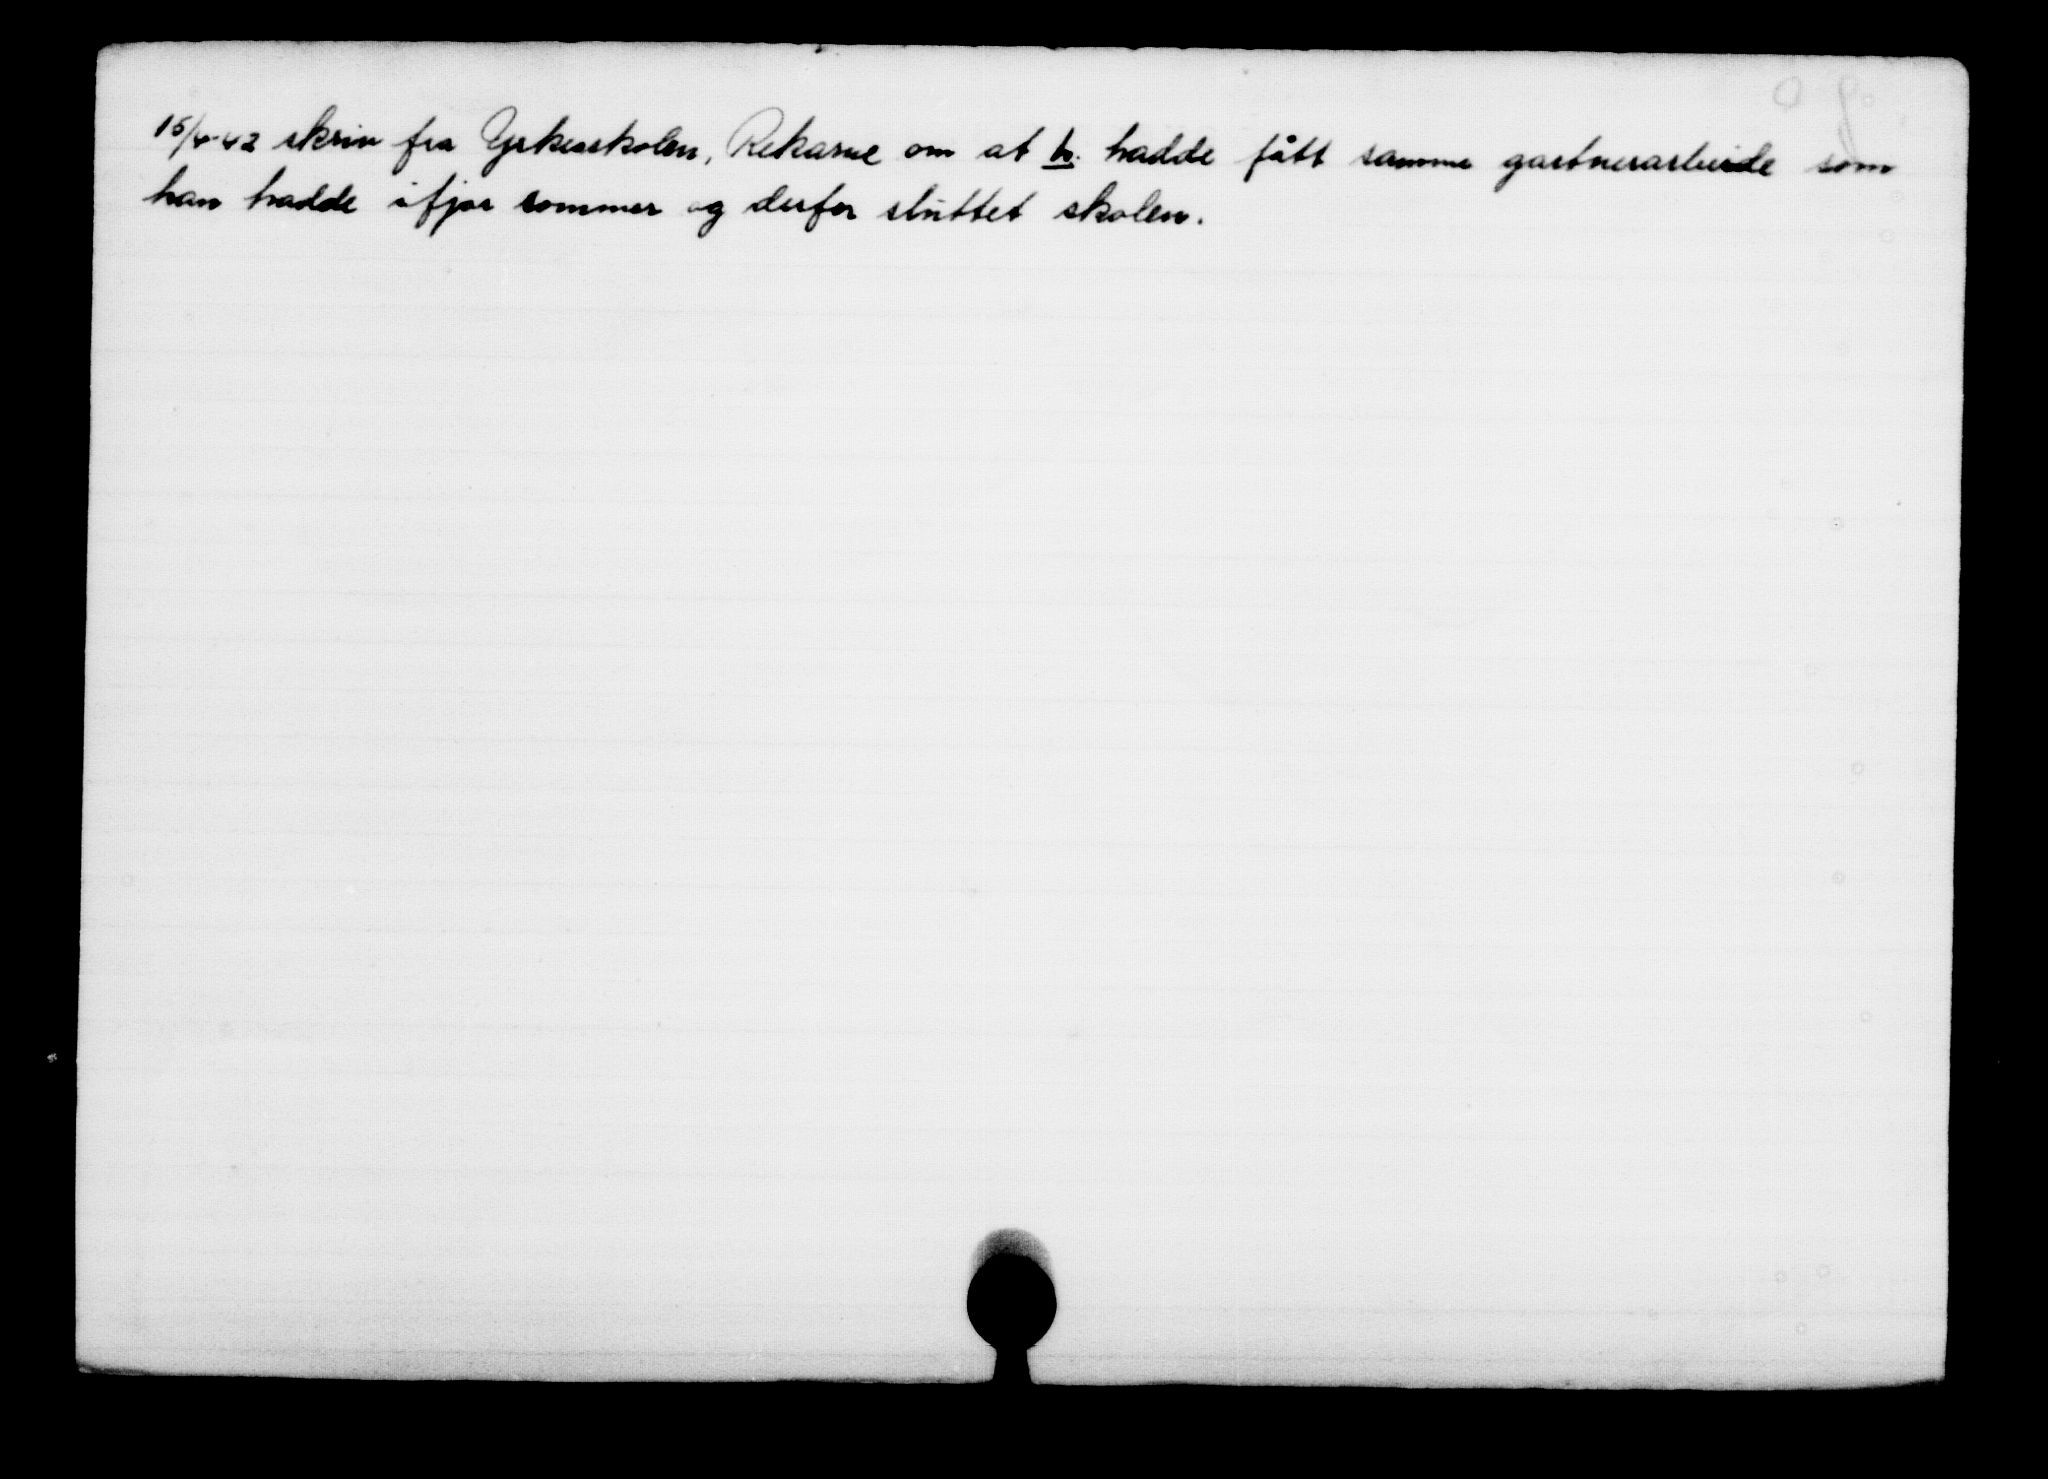 15/4-42 skriv fra Yrkesskolen, Rekarne om at h. hadde fått samme gartnerarbeide som
han hadde ifjor sommer og derfor sluttet skolen.